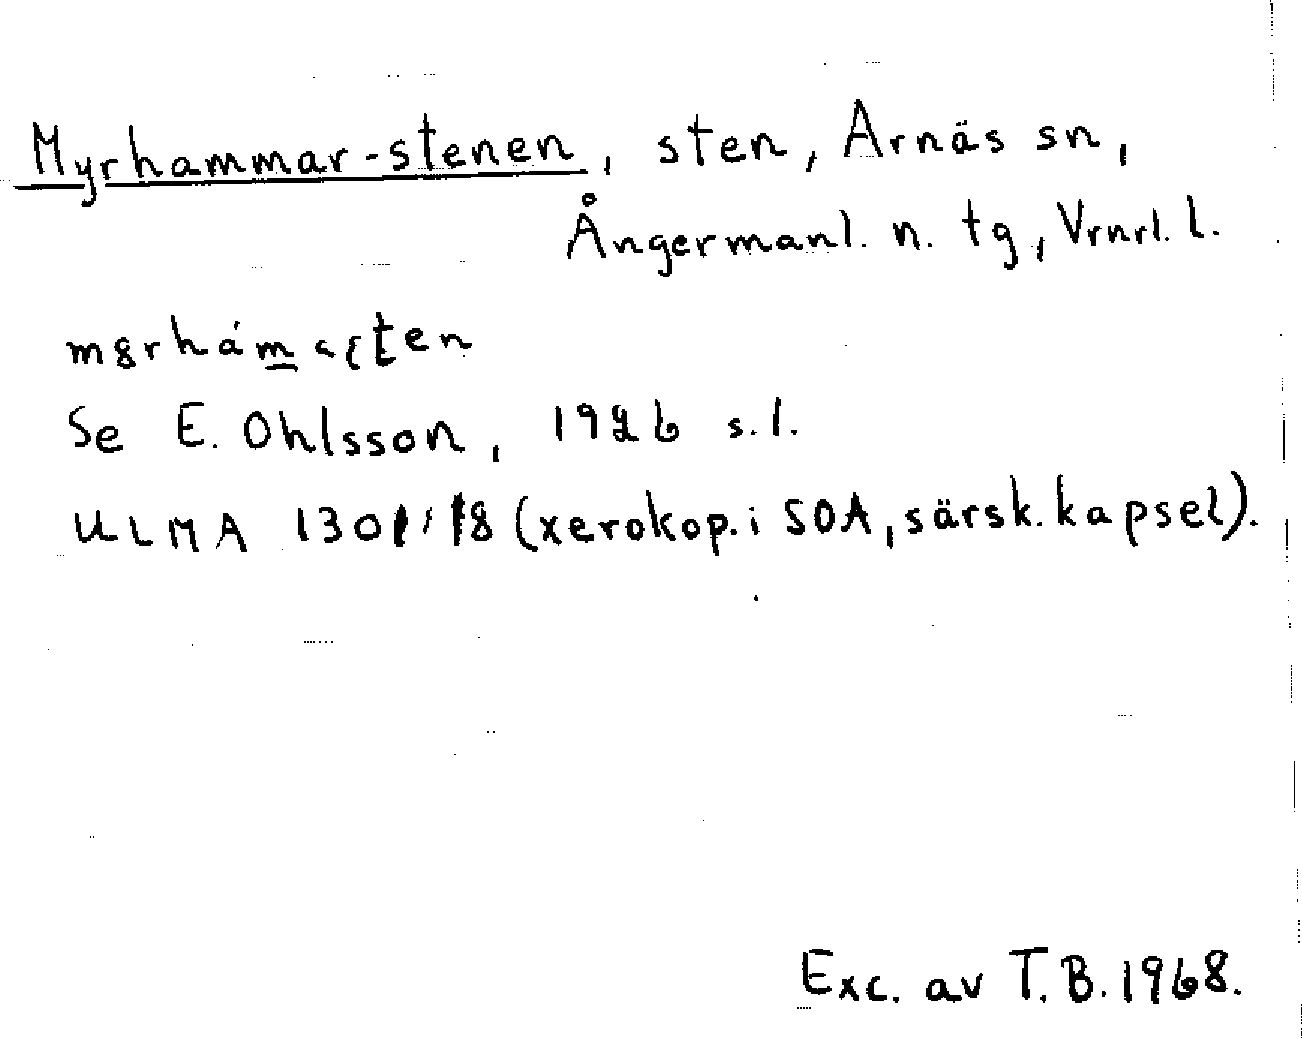 Myrhammar-stenen, sten, Arnäs sn,
Ångermanl. n. tg, Vrnrl. l.
Se E. Ohlsson, 1926 s.1.
ULMA 1301:18 (xerokop. i SOA, särsk. kapsel).
Exc. av T.B. 1968.